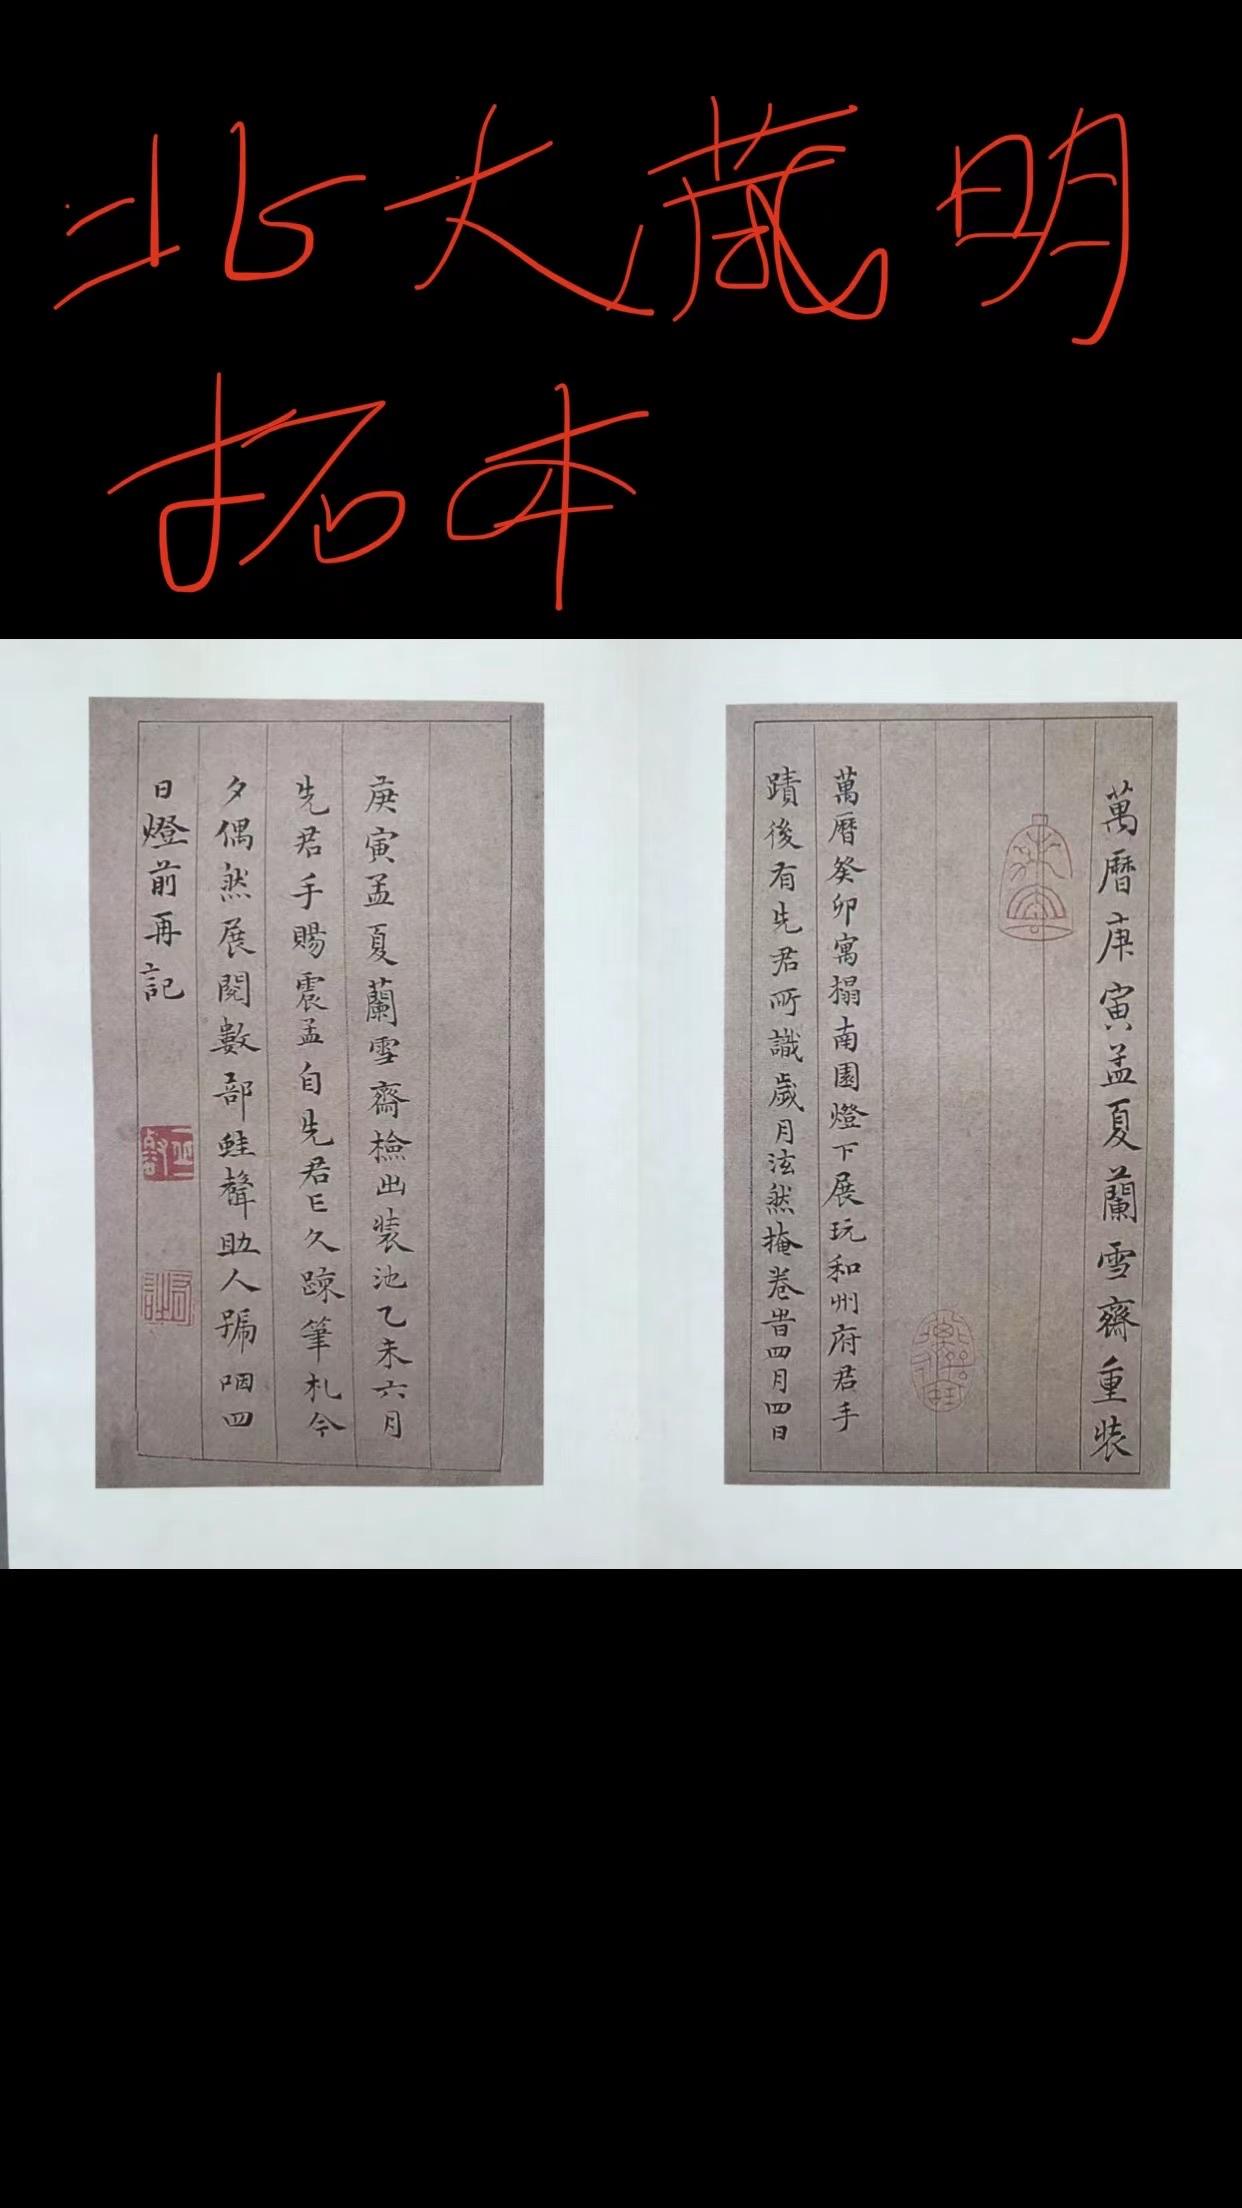 北大藏明
拓本
萬曆庚寅孟夏蘭雪齋重裝
萬曆癸卯寓搨南園燈下展玩和州府君手
蹟後有先君所識歲月泫然掩卷旹四月四日
庚寅孟夏蘭雪齋檢出裝池乙未六月
先君手賜震孟自先君已久踈筆札今
夕偶然展閱數部蛙聲助人號咽四
日燈前再記